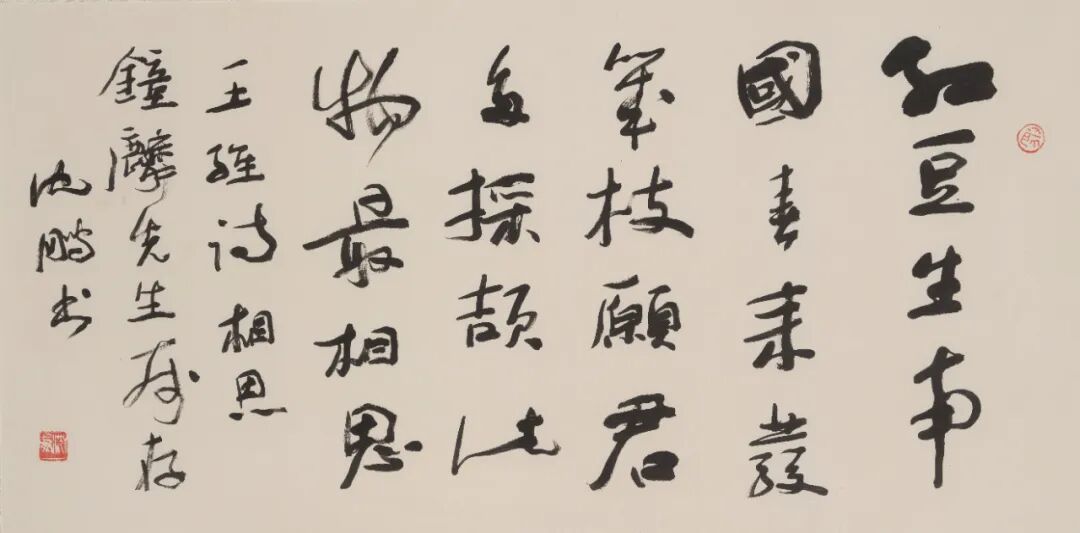 紅豆生南
國春來發
幾枝願君
多採頡此
物最相思
王維詩 相思
鐘先生存
沈鵬書